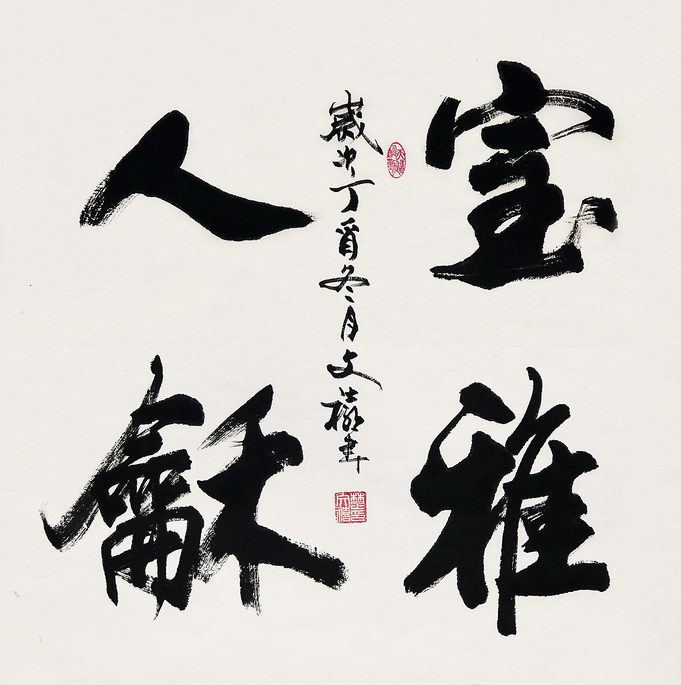 室雅
人龢
歲次丁酉冬月文書